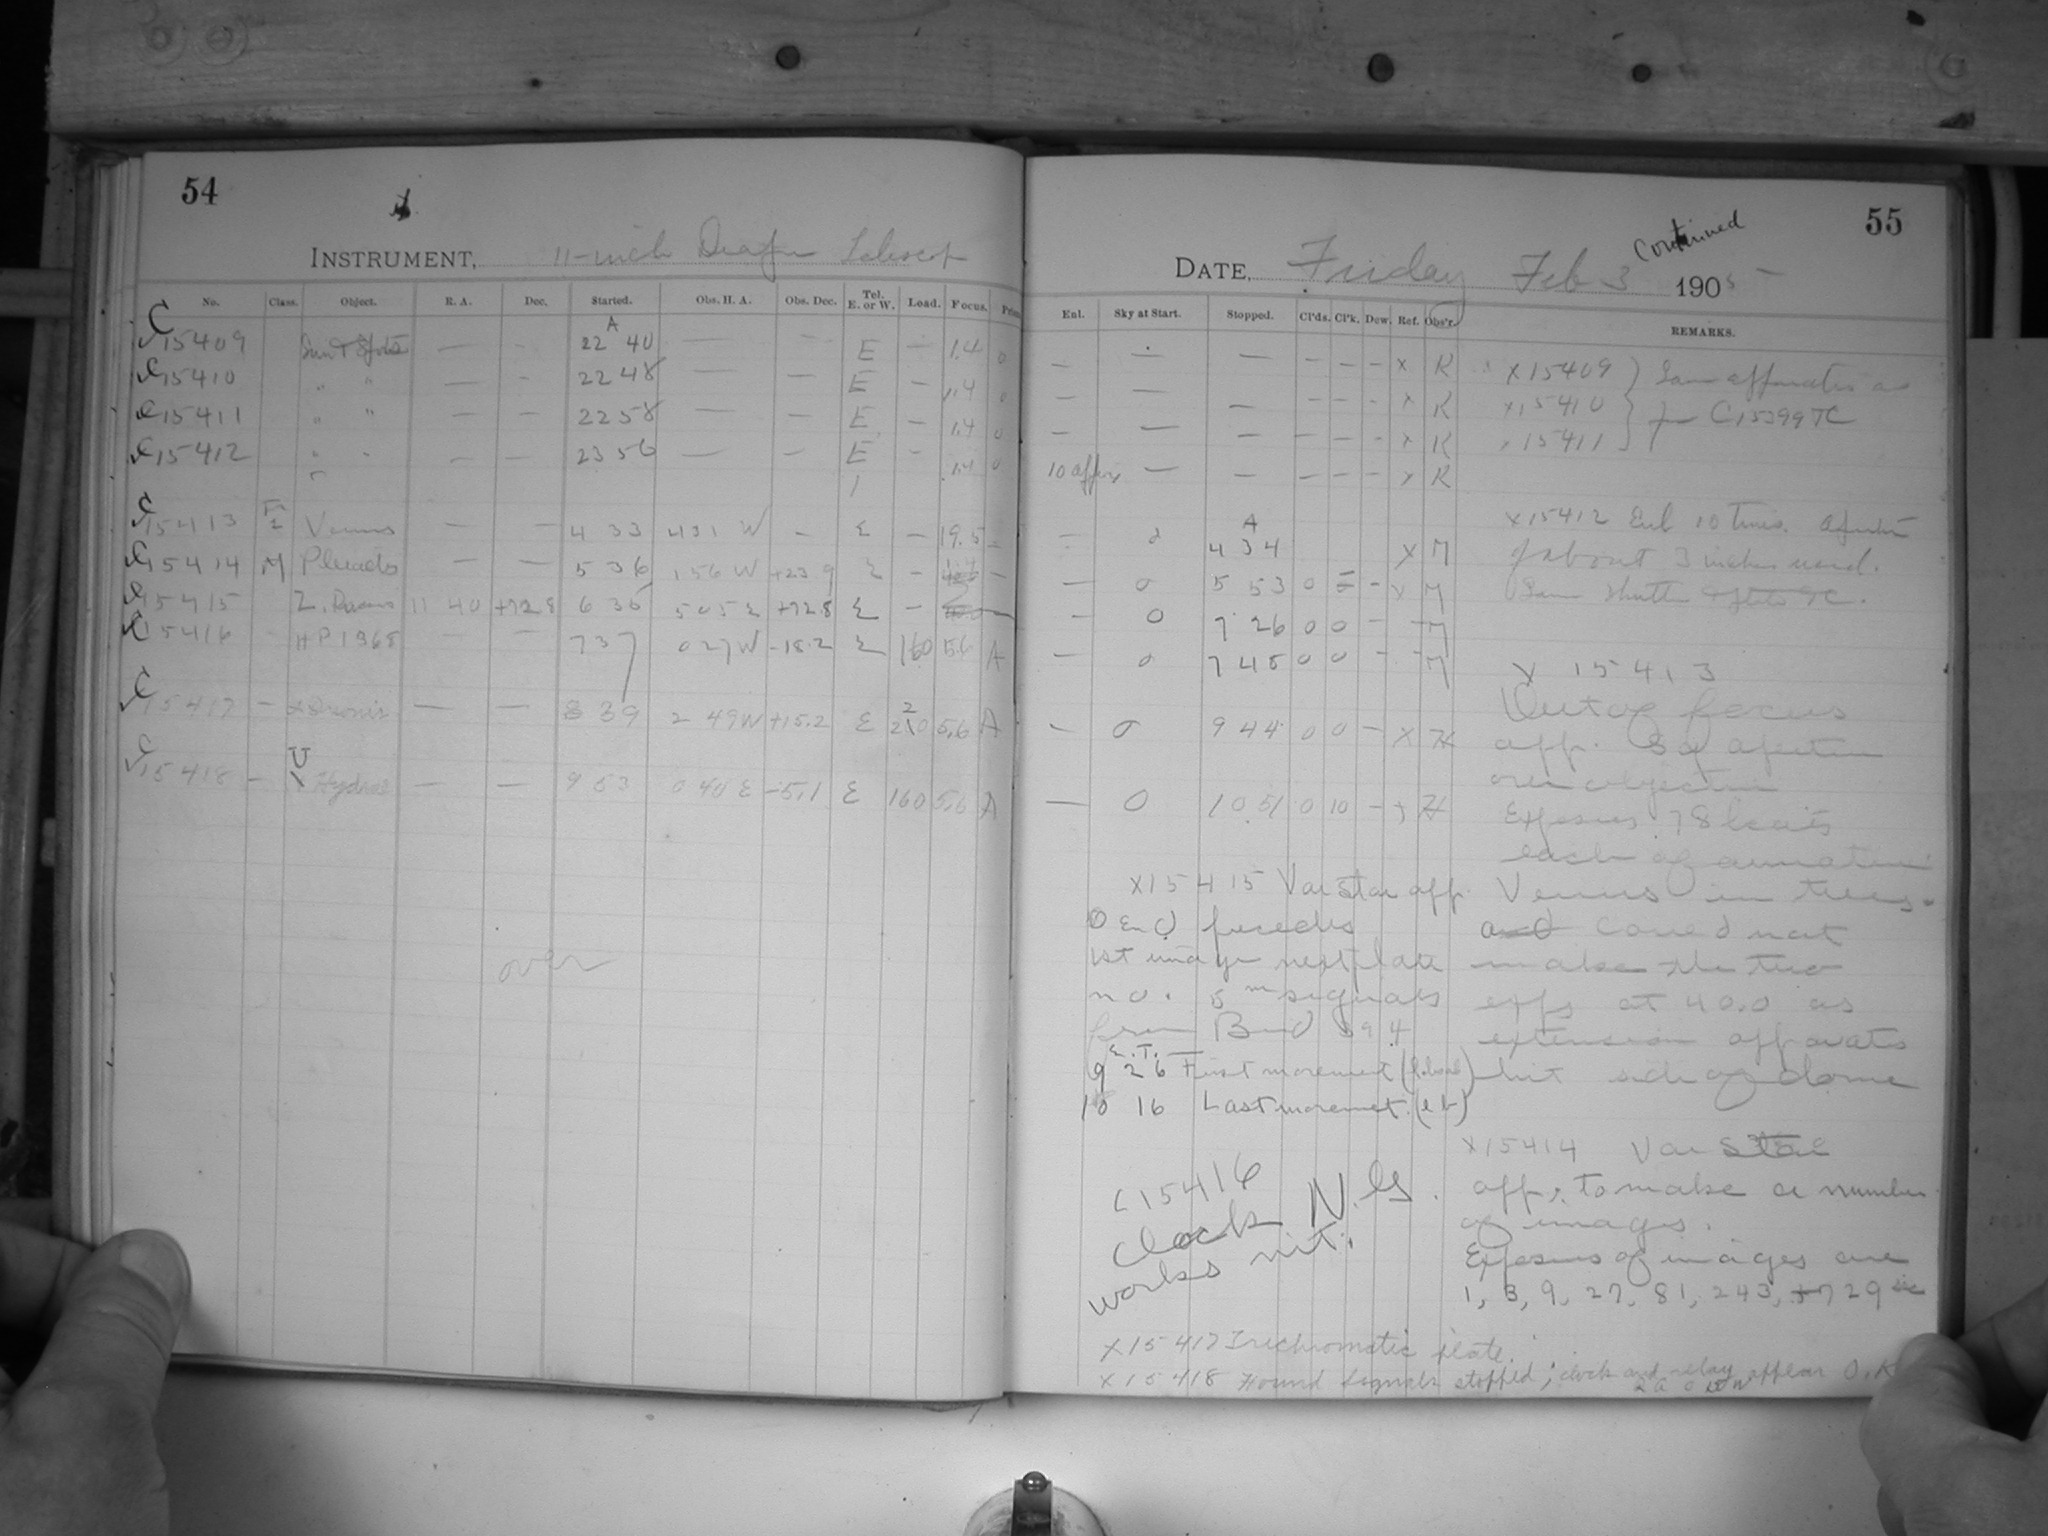 54
INSTRUMENT, 11-inch Draper Telescop
No. Class. Object. R. A. Dec. Started. Obs. H. A. Obs. Dec. Tel. E. or W. Load. Focus.
C 15409 Sun + Spots — - A 22 40 — — E — 1.4 0
C 15410 " " — - 22 48 — — E — 1.4 0
C 15411 " " — — 22 58 — — E — 1.4 0
C 15412 " " — — 23 56 — — E - 1.4 0
C 15413 Venus — — 4 33 4 31 W - E — 19.5 -
C 15414 M Pleiades — — 5 36 1 56 W +23 9 E - —
C 15415 Z. Draconis 11 40 +72 8 6 35 5 05 E +72 8 E —
C 15416 HP 1365 — — 7 37 0 27 W -18.2 E 160 5.6 A
C 15417 — α Orionis — — 8 39 2 49 W +15.2 E 5.6 A
C 15418 — U Hydrae — — 9 53 0 40 E -5.1 E 160 5.6 A
over
55
DATE, Friday Feb 3 Continued 1905
Enl. Sky at Start. Stopped. Cl'ds. Cl'k. Dew. Ref. Obs'r. REMARKS.
— — — - - - x K
— — — - - - x K
— — — - - - x K
10 — — - - - x K
— A 4 34 x M
— 0 5 53 0 - x M
0 7 26 0 0 - M
— 0 7 45 0 0 - - M
— 0 9 44 0 0 - x H
— 0 10 51 0 10 - x H
x15409 } Same apparatus as
x15410 } for C15399 TC
x15411 }
x15412 Enl 10 times.
of about 3 inches used.
x 15413
Out of focus
app. Sq aperture
over objective
Exposures 78 beats
each of armature
Venus in trees.
and could not
make the two
exps at 40.0 as
extension apparatus
hit side of dome
x15414 Var Star
app. to make a number
of images.
Exposures of images are
1, 3, 9, 27, 81, 243, + 729
x15415 Var Star app.
1st image next plate
no. 5 m signals
from Bond 394
E.T.
9 26 First movement
10 16 Last movement.
C15416
Clock N.G.
works nit.
x15417 Trichromatic plate.
x15418 Found signals stopped; clock and relay appear O.K